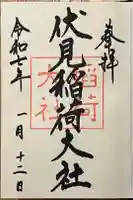 奉拝
伏見稲荷大社
稲荷
大社
令和七年
一月十二日